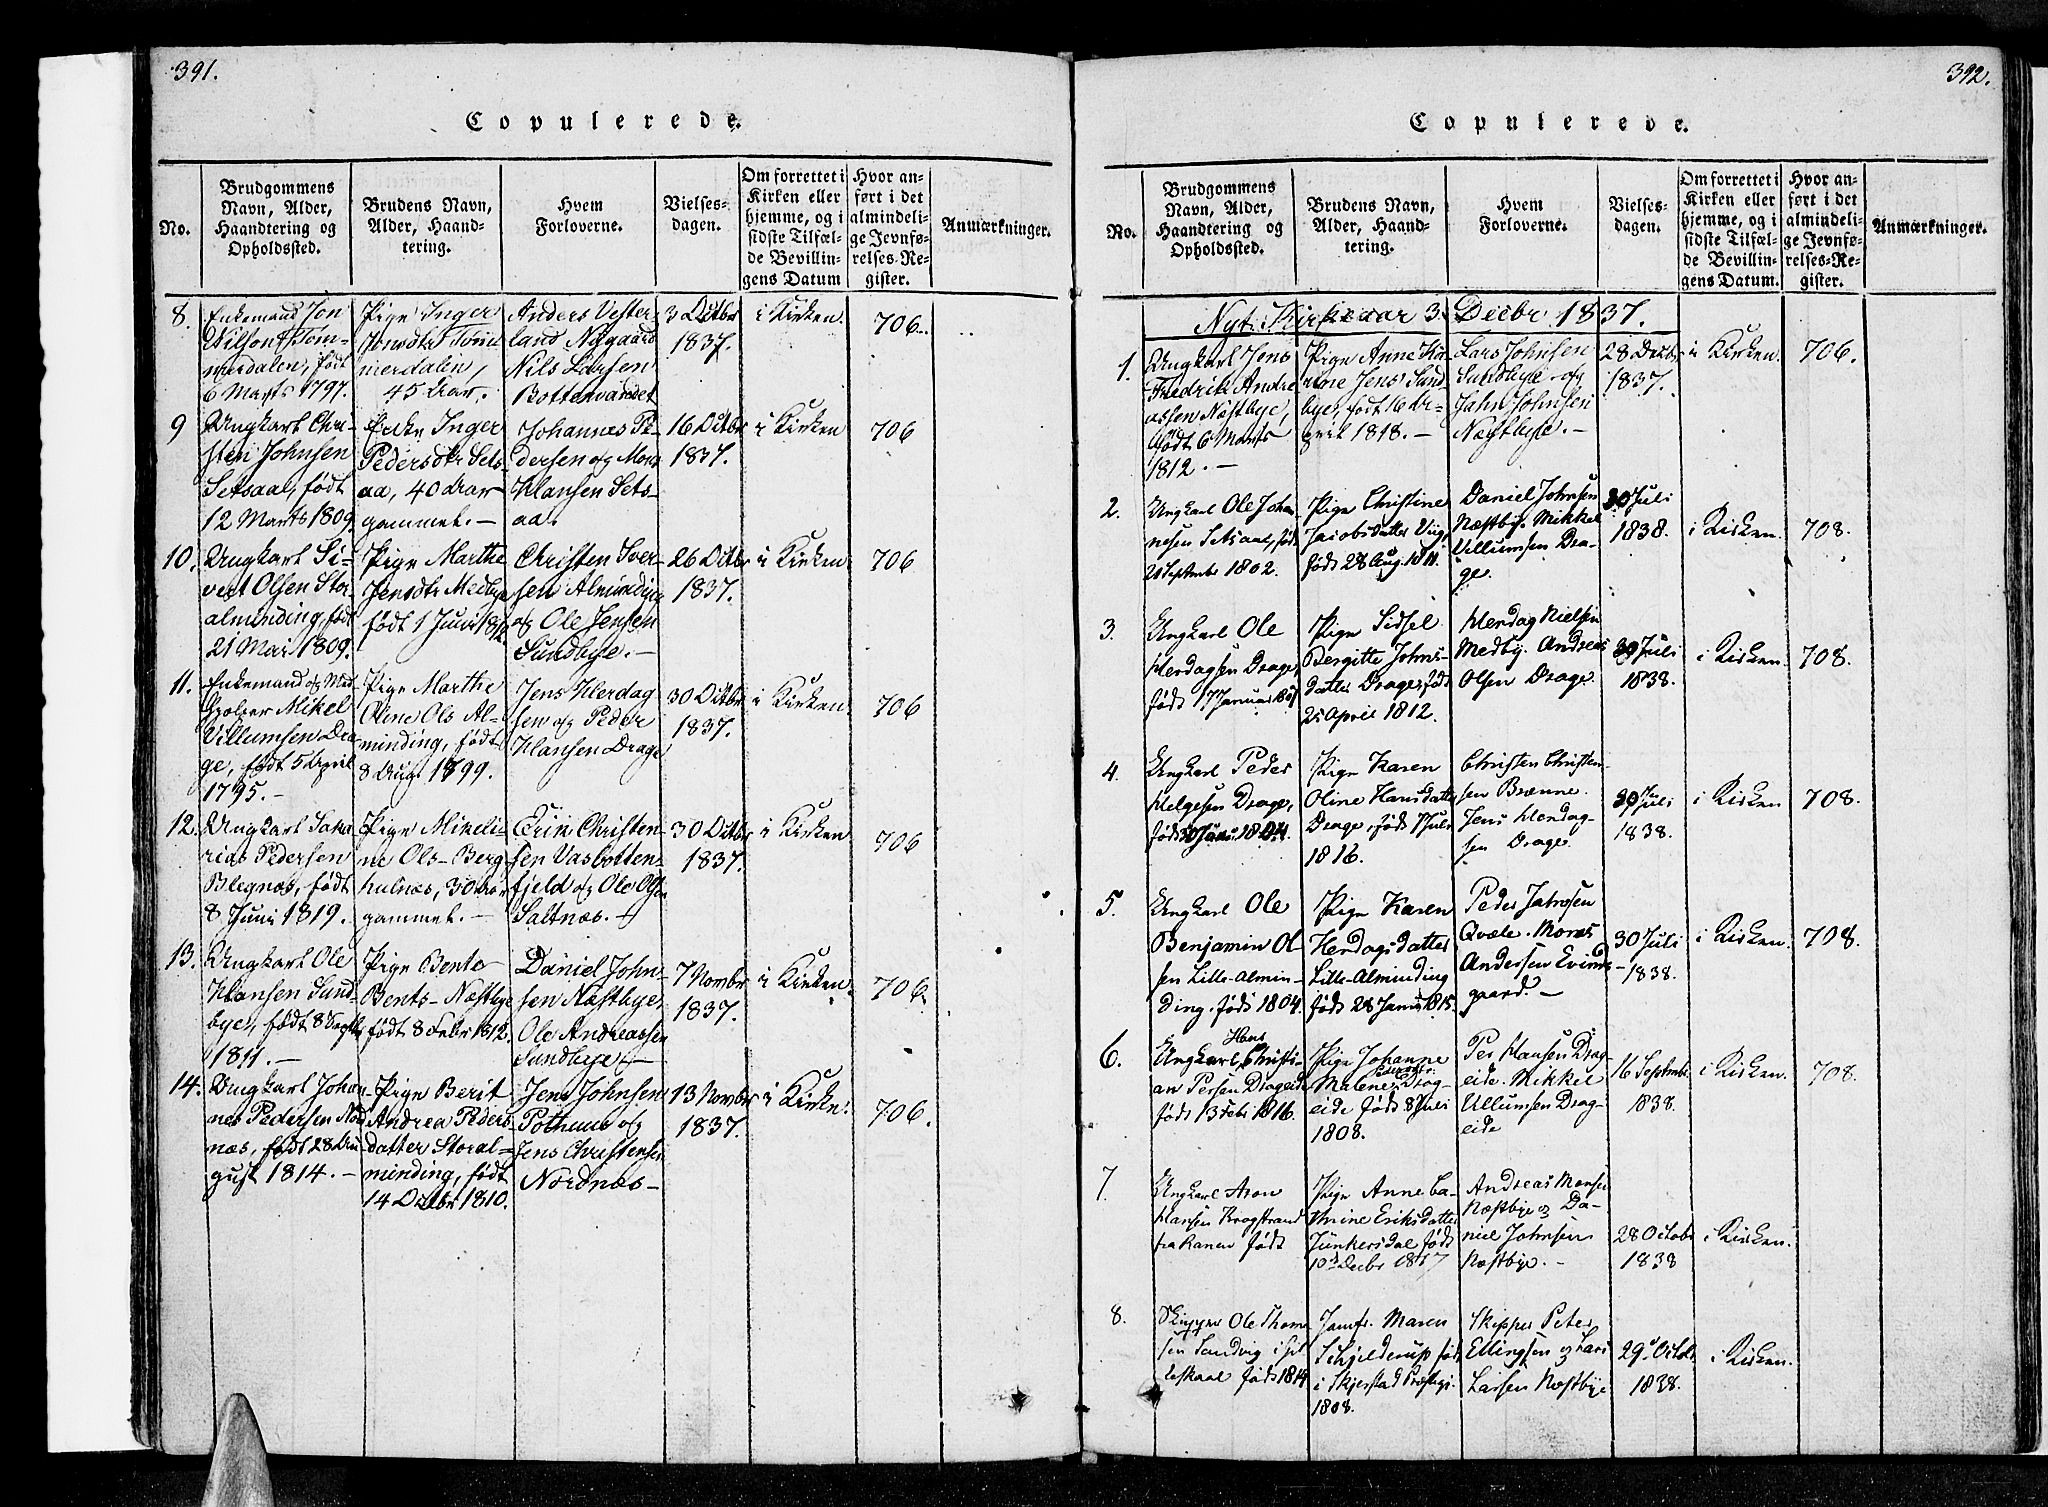 391.
Copulerede.
No.
Brudgommens Navn, Alder, Haandtering og Opholdssted.
Brudens Navn, Alder, Haandtering.
Hvem Forloverne.
Vielsesdagen.
Om forrettet i Kirken eller hjemme, og i sidste Tilfælde Bevillingens Datum
Hvor anført i det almindelige Jevnførelses-Register.
Anmærkninger.
8. Enkemand Jon
Tømmerdalen, født
6 Marts 1797.
Pige Inger
Tømmerdalen,
45 Aar.
Anders Vesterland
Nils Larsen
Bottenvandet
3 Octbr
1837.
i Kirken.
706.
9 Ungkarl Christen
Johnsen
Setsaa, født
12 Marts 1809
Enke Inger
Pedersdtr Setsaa,
40 Aar
gammel.
Johannes Pedersen
og
Hansen Setsaa.
16 Octbr
1837.
i Kirken
706
10. Ungkarl Sivert
Olsen Storalminding,
født
21 Mai 1809.
Pige Marthe
Jensdtr Medbye
født 1 Juni
Christen
Almindingen
og Ole Jensen
Sundbye.
26 Octbr
1837.
i Kirken
706
11. Enkemand og
Mikel
Villumsen Drage,
født 5 April
1795.
Pige Marthe
Oline Ols Alminding,
født
8 Aug. 1799.
Jens Herdagsen
og Peder
Hansen Drage
30 Octbr
1837.
i Kirken.
706
12. Ungkarl Sakarias
Pedersen
født
8 Juni 1819.
Pige Mikeline
Ols
30 Aar
gammel.
Erik Christensen
Vasbottenfjeld
og Ole Olsen
Saltnæs.
30 Octbr
1837.
i Kirken
706
13. Ungkarl Ole
Hansen Sundbye,
født 8 Septbr
1811.
Pige Bente
Bents Næstbye
født 8 Febr 1812.
Daniel Johnsen
Næstbye,
Ole Andreassen
Sundbye
7 Novbr
1837.
i Kirken.
706.
14. Ungkarl Johannes
Pedersen
født 28 August
1814.
Pige Berit
Andrea Pedersdatter
Storalminding,
født
14 Octbr 1810.
Jens Johnsen
Pothuus og
Jens Christensen
Nordnæs
13 Novbr
1837.
i Kirken.
706.
392.
Copulerede.
No.
Brudgommens Navn, Alder, Haandtering og Opholdssted.
Brudens Navn, Alder, Haandtering.
Hvem Forloverne.
Vielsesdagen.
Om forrettet i Kirken eller hjemme, og i sidste Tilfælde Bevillingens Datum.
Hvor anført i det almindelige Jevnførelses-Register.
Anmærkninger.
Nyt Kirkeaar 3 Decbr 1837.
1. Ungkarl Jens
Fredrik Andreassen
Næstbye,
født 6 Marts
1812.
Pige Anne Karine
Jens Sundbye,
født 16
1818.
Lars Johnsen
Sundbye og
Jahn Johnsen
Næstbye.
28 Decbr
1837.
i Kirken.
706.
2. Ungkarl Ole Johannesen
Setsaae, født
Septembr 1802.
Pige Christine
Jacobsdatter
født 28 Aug.
Daniel Johnsen
Næstby. Mikkel
Villumsen Drage.
30 Juli
1838.
i Kirken.
708.
3. Ungkarl Ole
Herdagsen Drage,
født 17 Januar
Pige Sidsel
Bergitte Johnsdatter
Drage, født
25 April 1812.
Herdag Nielsen
Medby. Andreas
Olsen Drage.
30 Juli
1838.
i Kirken.
708.
4. Ungkarl Peder
Helgesen Drage,
født
Pige Karen
Oline Hansdatter
Drage, født Juli
1816.
Christen Christensen
Brænne.
Jens Herdagsen
Drage.
30 Juli
1838.
i Kirken
708.
5. Ungkarl Ole
Benjamin Olsen
Lille-Alminding.
født 1804.
Pige Karen
Herdagsdatter
Lille-Alminding
født 28 Januar 1815.
Peder Jahnsen
Qvæle. Mons
Andersen Evinsgaard.
30 Juli
1838.
i Kirken.
708.
6. Ungkarl Hans Christian
Persen Drageide
født 13 Feb: 1816.
Pige Johanne
Malene Drageide
født 8 Juli
1808.
Per Hansen Drageide.
Mikkel
Villumsen Drageide
16 Septmb
1838.
i Kirken.
708.
7 Ungkarl Aron
Hansen Krogstrand
fra Ranen født
Pige Anne Cathrine
Eriksdatter
Junkersdal født
10de Decbr 1817
Andreas Monsen
Næstbye og Daniel
Johnsen
Næstbye.
28 Octobr
1838
i Kirken.
8. Skipper Ole Thomsen
Sandvig i Gildeskaal
født 1814
Jomfr. Maren
Schjelderup født
i Skjerstad Præstegj.
1808.
Skipper Peter
Ellingsen og Lars
Larsen Næstbye
29 Octob.
1838.
i Kirken.